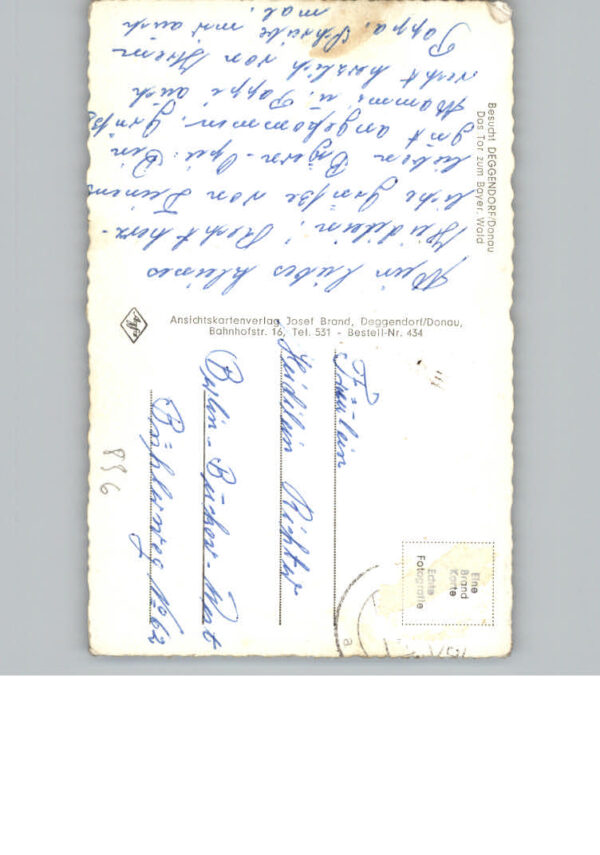 Besucht DEGGENDORF/Donau
Das Tor zum Bayer. Wald
Mein liebes kleines
Heidilein! Recht herz-
liche Grüße von Deinem
lieben Bayern-Opi. Bin
gut angekommen. Grüße
Mammi u. Pappi auch
recht herzlich von Deinem
Pappa. Schreibe mir auch
mal.
Ansichtskartenverlag Josef Brand, Deggendorf/Donau,
Bahnhofstr. 16, Tel. 531 - Bestell-Nr. 434
Agfa
Fräulein
Heidilein Richter
Berlin-Buckow-West
No 62
896
Eine
Brand
Karte
Echte
Fotografie
a